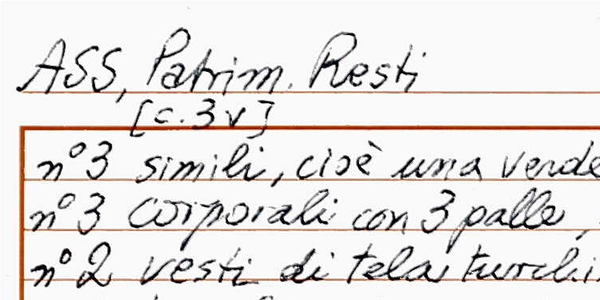 ASS, Patrim. Resti
[c. 3 v]
n° 3 simili, cioè una verde
n° 3 corporali con 3 palle,
n° 2 vesti di tela turchi